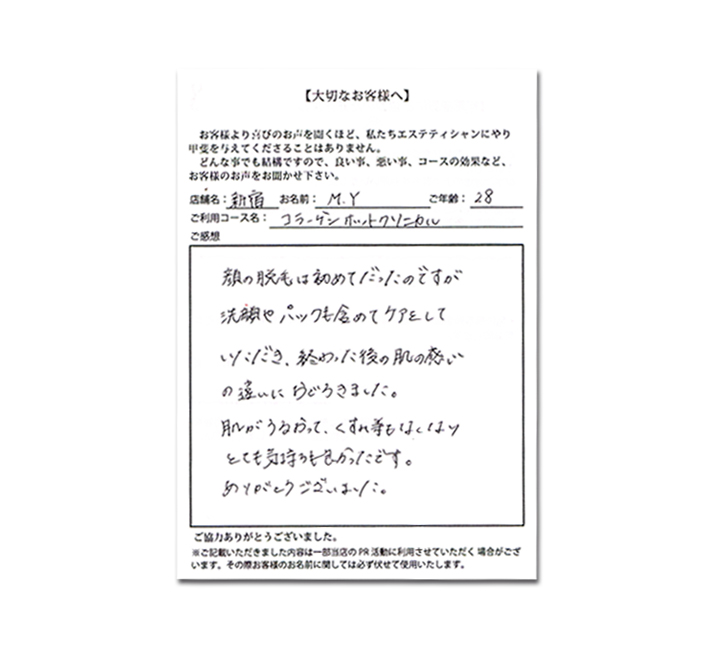 【大切なお客様へ】
お客様より喜びのお声を聞くほど、私たちエステティシャンにやり
甲斐を与えてくださることはありません。
どんな事でも結構ですので、良い事、悪い事、コースの効果など、
お客様のお声をお聞かせ下さい。
店舗名: 新宿 お名前: M.Y ご年齢: 28
ご利用コース名: コラーゲンホットクリニカル
ご感想
顔の脱毛は初めてだったのですが
洗顔やパックも含めてケアをして
いただき、終わった後の肌の感じ
の違いにおどろきました。
肌がうるおって、くすみ等も
とても気持ちも良かったです。
ありがとうございました。
ご協力ありがとうございました。
※ご記載いただきました内容は一部当店のPR活動に利用させていただく場合がござ
います。その際お客様のお名前に関しては必ず伏せて使用いたします。